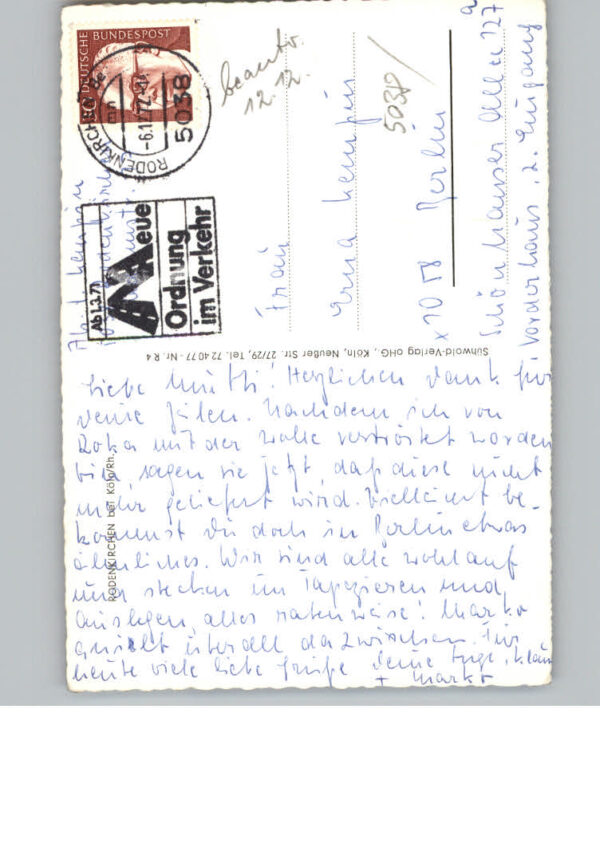 DEUTSCHE BUNDESPOST
RODENKIRCHEN
-6.12.72
5038
Ab 1.3.71
Neue
Ordnung
im Verkehr
beantw.
12.12.
5038
Frau
Erna
x 1058 Berlin
Schönhauser Allee 127 a
Vorderhaus, 2. Eingang
Sühwold-Verlag oHG., Köln, Neußer Str. 27/29, Tel. 72 40 77 - Nr. R 4
RODENKIRCHEN bei Köln/Rh.
Liebe Mutti! Herzlichen Dank für
deine Zeilen. Nachdem ich von
mit der Wolle vertröstet worden
bin, sagen sie jetzt, daß diese nicht
mehr geliefert wird. Vielleicht be-
kommst du doch in Berlin etwas
ähnliches. Wir sind alle wohlauf
und stecken im Tapezieren und
auslegen, alles ratenweise! Marko
überall dazwischen. Für
heute viele liebe Grüße deine Inge, Klaus
+ Marko